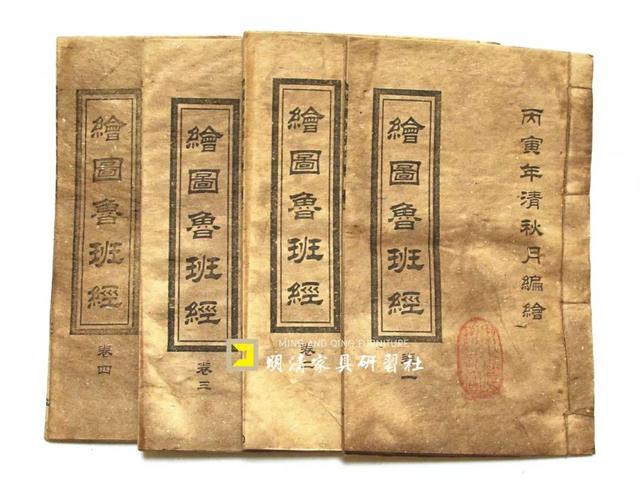 丙寅年清秋月編繪
繪圖魯班經
卷一
繪圖魯班經
卷二
繪圖魯班經
卷三
繪圖魯班經
卷四
MING AND QING FURNITURE
明清家具研習社